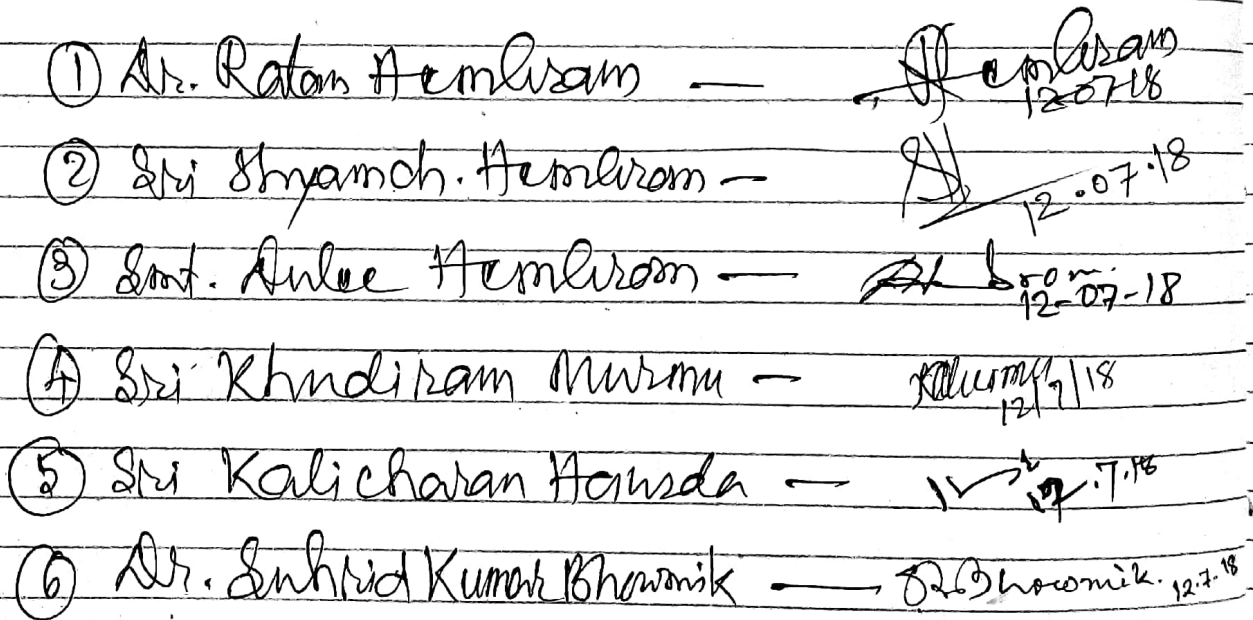 ① Dr. Ratan Hembram — Hembram 12.07.18
② Sri Shyamch. Hembrom — 12.07.18
③ Smt. Dulee Hembrom — 12-07-18
④ Sri Khudiram Murmu — KMurmu 12/7/18
⑤ Sri Kalicharan Hansda — 12.7.18
⑥ Dr. Suhrid Kumar Bhowmik — Bhowmik. 12.7.18